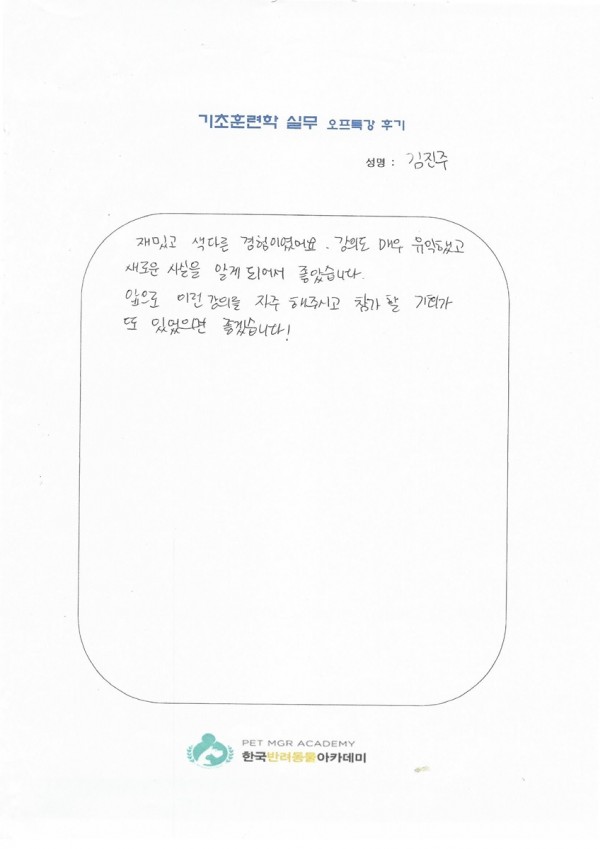 기초훈련학 실무 오프특강 후기
성명 : 김진주
재밌고 색다른 경험이였어요. 강의도 매우 유익했고
새로운 사실을 알게 되어서 좋았습니다.
앞으로 이런 강의를 자주 해주시고 참가 할 기회가
또 있었으면 좋겠습니다!
PET MGR ACADEMY
한국반려동물아카데미